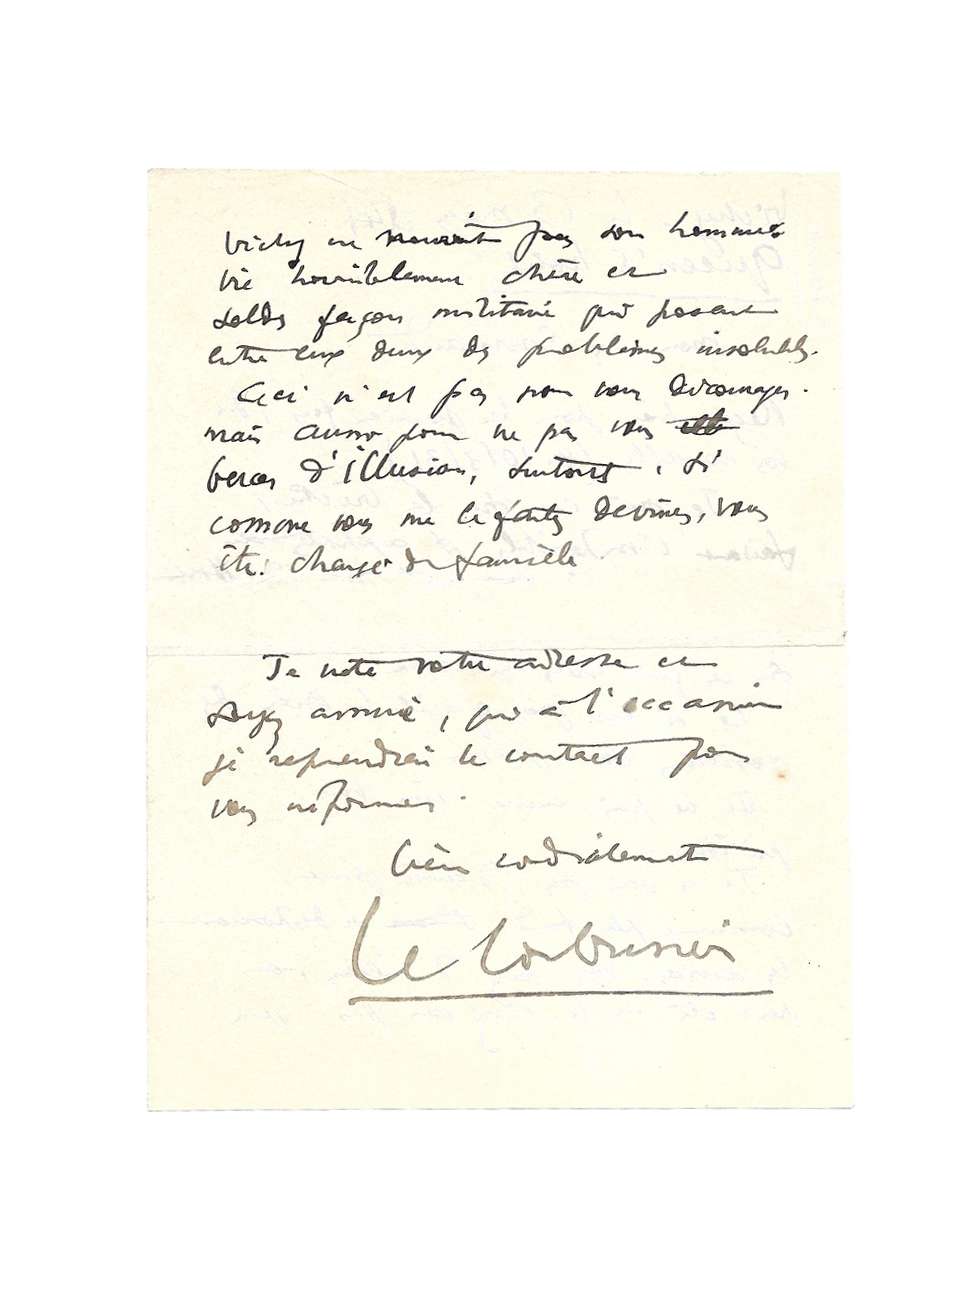 Vichy ne nourrit pas son homme
Vie horriblement chère et
soldes façon militaire qui posent
entre eux deux des problèmes insolubles.
Ceci n'est pas pour vous décourager.
mais aussi pour ne pas vous
bercer d'illusion, surtout, si
comme vous me le faites deviner, vous
êtes chargé de famille
Je note votre adresse et
soyez assuré, qu'à l'occasion
je reprendrai le contact pour
vous informer.
bien cordialement
Le Corbusier